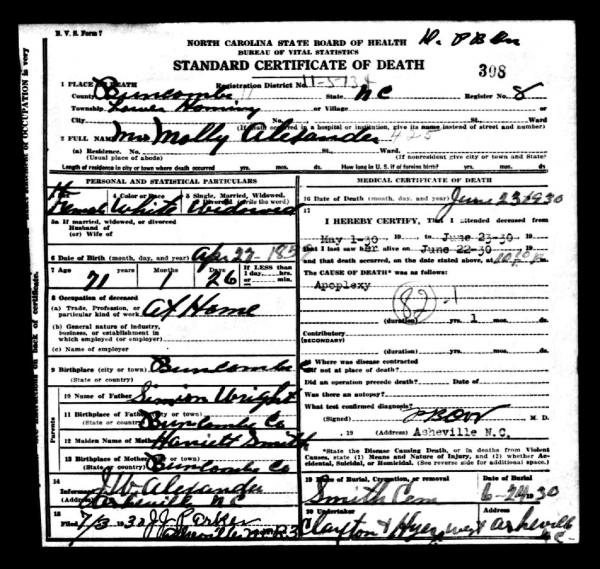 B. V. S. Form 7
NORTH CAROLINA STATE BOARD OF HEALTH
BUREAU OF VITAL STATISTICS
STANDARD CERTIFICATE OF DEATH
398
1 PLACE OF DEATH
Registration District No. 11-5734
County Buncombe State NC Register No. 8
Township Lower Hominy or Village
City No. St., Ward
(If death occurred in a hospital or institution, give its name instead of street and number)
2 FULL NAME Mrs Molly Alexander 425
(a) Residence. No. St., Ward
(Usual place of abode) (If nonresident give city or town and State)
Length of residence in city or town where death occurred yrs. mos. ds. How long in U. S. if foreign birth? yrs. mos. ds.
PERSONAL AND STATISTICAL PARTICULARS
4 Color or Race 5 Single, Married, Widowed,
or Divorced (write the word)
Female White Widowed
5a If married, widowed, or divorced
Husband of
(or) Wife of
6 Date of Birth (month, day, and year) Apr 27-185
7 Age Years Months Days If LESS than
1 day, hrs.
or min.
71 1 26
8 Occupation of deceased
(a) Trade, Profession, or
particular kind of work At Home
(b) General nature of industry,
business, or establishment in
which employed (or employer)
(c) Name of employer
9 Birthplace (city or town) Buncombe C
(State or country)
10 Name of Father Simion Wright
11 Birthplace of Father (city or town)
(State or country) Buncombe Co
12 Maiden Name of Mother Harriett Smith
13 Birthplace of Mother (city or town)
(State or country) Buncombe Co
14
Informant J W Alexander
Asheville NC
15
Filed 7/3 1930 J J Parker
Asheville NC R3
MEDICAL CERTIFICATE OF DEATH
16 Date of Death (month, day, and year) June 23, 1930
17
I HEREBY CERTIFY, That I attended deceased from
May 1-30, 19 to June 23-30, 19
that I last saw her alive on June 22-30, 19
and that death occurred, on the date stated above, at
The CAUSE OF DEATH* was as follows:
Apoplexy
(82)-1
(duration) yrs. 1 mos. ds.
Contributory
(SECONDARY)
(duration) yrs. mos. ds.
18 Where was disease contracted
if not at place of death?
Did an operation precede death? Date of
Was there an autopsy?
What test confirmed diagnosis?
(Signed) M. D.
, 19 (Address) Asheville N.C.
*State the Disease Causing Death, or in deaths from Violent
Causes, state (1) Means and Nature of Injury, and (2) whether Accidental, Suicidal, or Homicidal. (See reverse side for additional space.)
19 Place of Burial, Cremation, or Removal Date of Burial
Smith Cem 6-24 1930
20 Undertaker Address
Clayton & Hyer West Asheville
NC
Parents